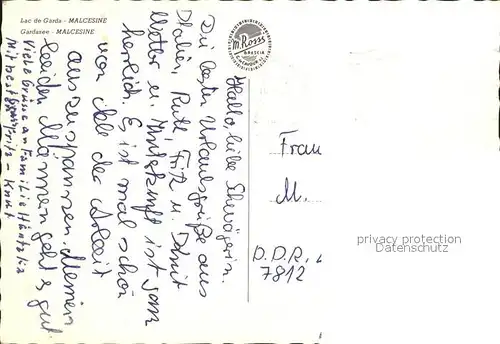 Lac de Garda - MALCESINE
Gardasee - MALCESINE
M. Rossi
BRESCIA
Hallo, liebe Schwägerin.
Die besten Urlaubsgrüße aus
Italien, Ruth, Fritz u. Damit
Wetter u. Unterkunft ist ganz
herrlich. Es ist mal schön
von Alle der Arbeit
auszuspannen. Meinen
beiden Männern geht's gut
Viele Grüße an Familie
Mit best Fritz - Knut
Frau
M.
D.D.R.
7812
privacy protection
Datenschutz